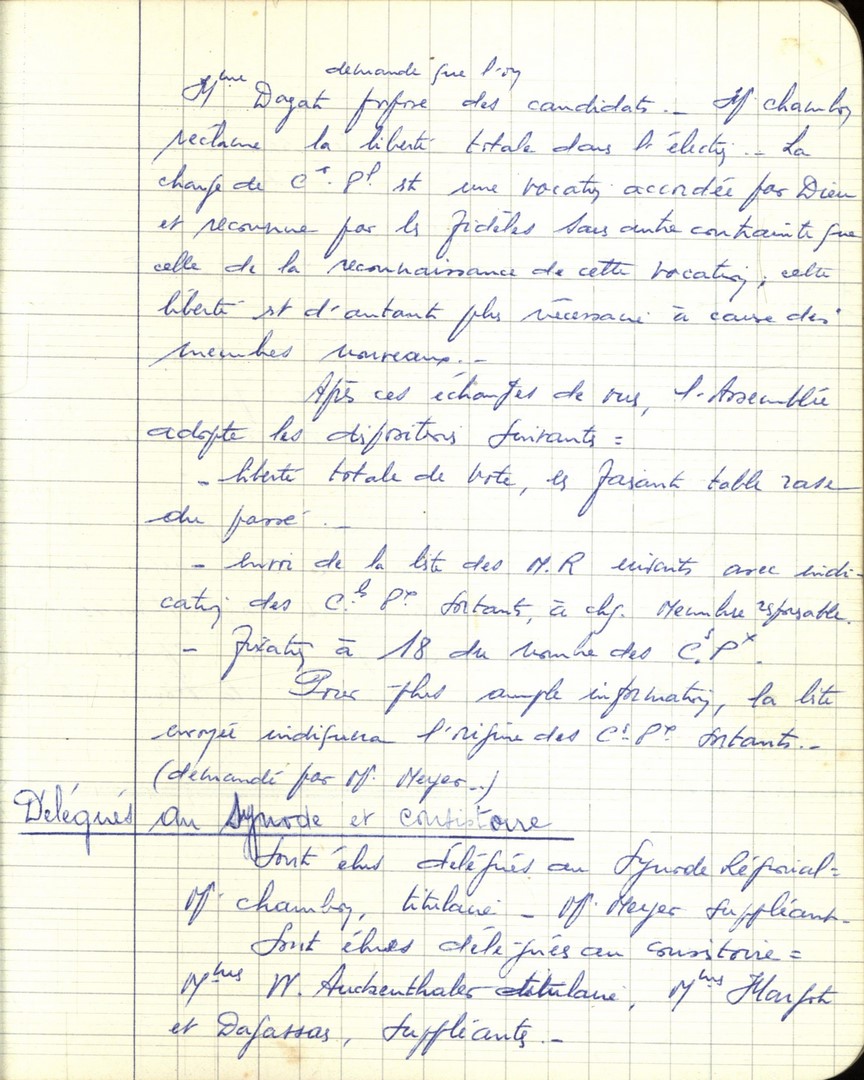 demande que l'on
Mme Dagan propose des candidats._ M. chambon
réclame la liberté totale dans l'élection._ La
charge de Cr. Pl est une vocation accordée par Dieu
et reconnue par les fidèles sans autre contrainte que
celle de la reconnaissance de cette vocation; cette
liberté est d'autant plus nécessaire à cause des
membres nouveaux._
Après ces échanges de vues, l'Assemblée
adopte les dispositions suivantes =
- liberté totale de vote, en faisant table rase
du passé._
- envoi de la liste des M.R suivants avec indi-
cation des Cs Px sortants, à chq. Membre responsable.
- fixation à 18 du nombre des Cs Px.
Pour plus ample information, la liste
envoyée indiquera l'origine des Cs Px sortants._
(demandé par M. Meyer._)
Délégués au Synode et consistoire
Sont élus délégués au Synode Régional =
M. chambon, titulaire _ M. Meyer suppléant._
Sont élues déléguées au consistoire =
Mmes W. Auckenthaler titulaire, Mmes
et Dagassas, suppléantes._